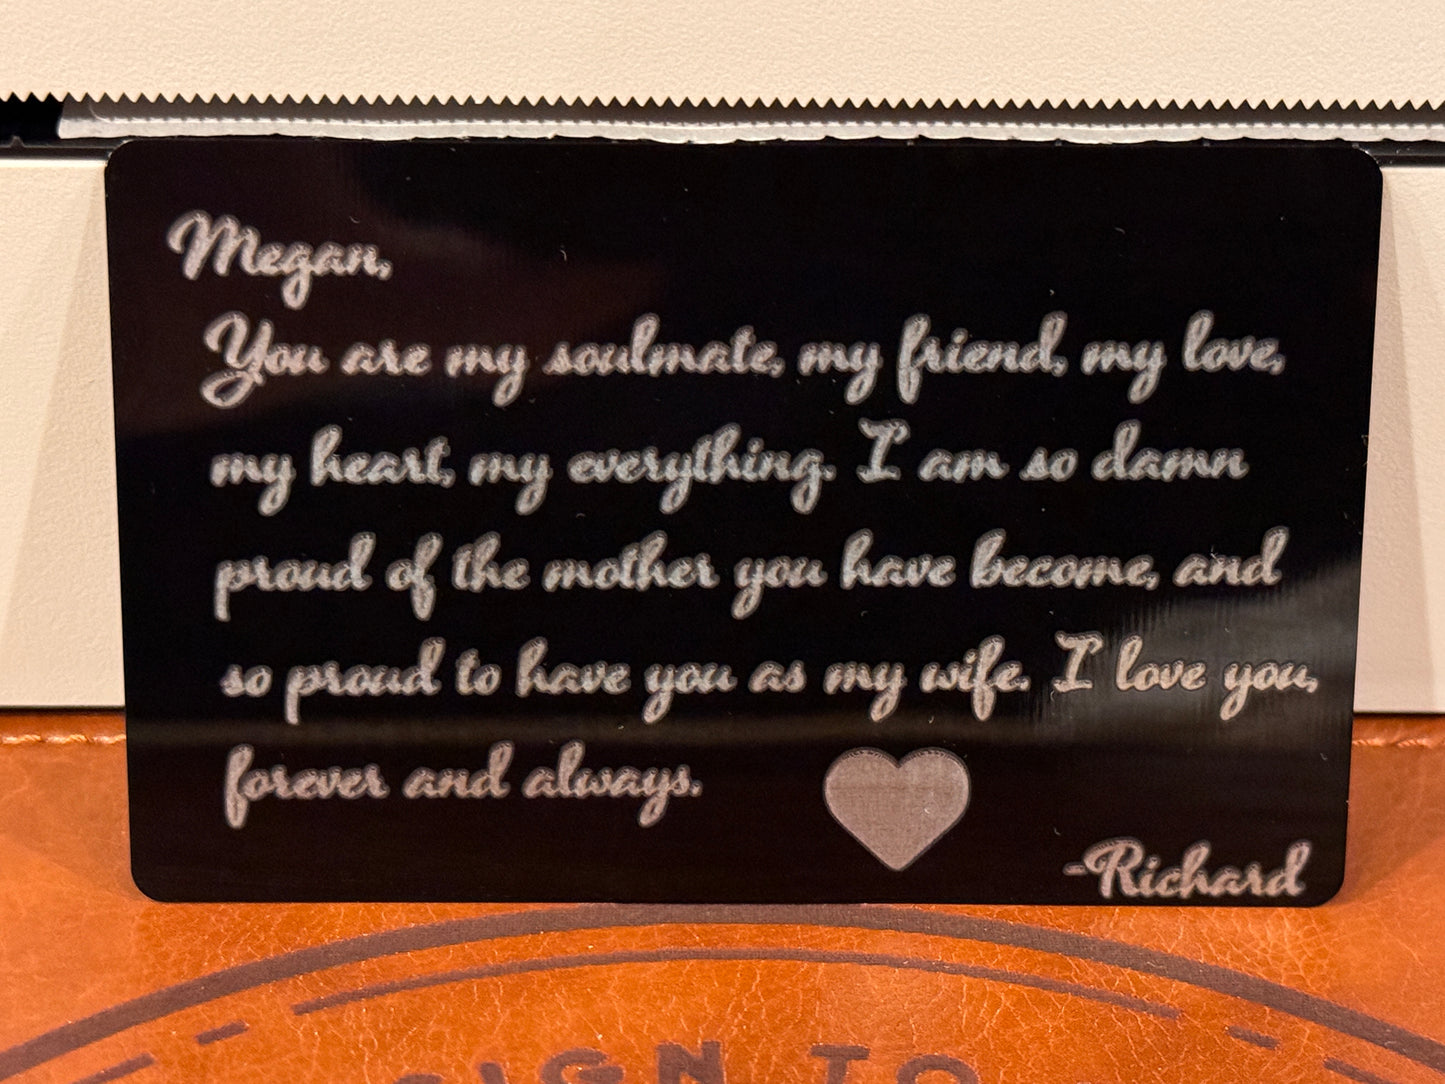 Megan,
You are my soulmate, my friend, my love,
my heart, my everything. I am so damn
proud of the mother you have become, and
so proud to have you as my wife. I love you,
forever and always.
-Richard
TO